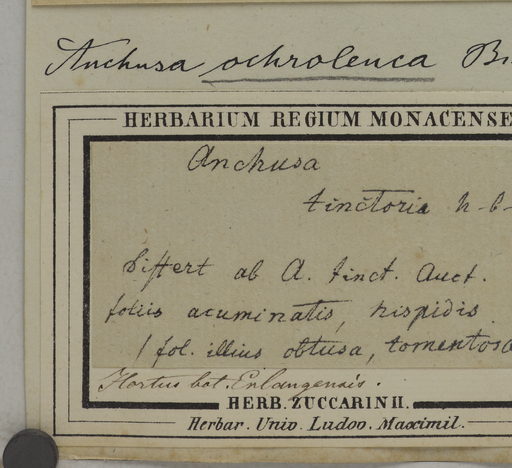 Anchusa ochroleuca
HERBARIUM REGIUM MONACENSE
Anchusa
tinctoria h-b-
Differt ab A. tinct. Auct.
foliis acuminatis, hispidis
/ fol. illius obtusa, tomentosa
Hortus bot. Erlangensis.
HERB. ZUCCARINII.
Herbar. Univ. Ludov. Maximil.